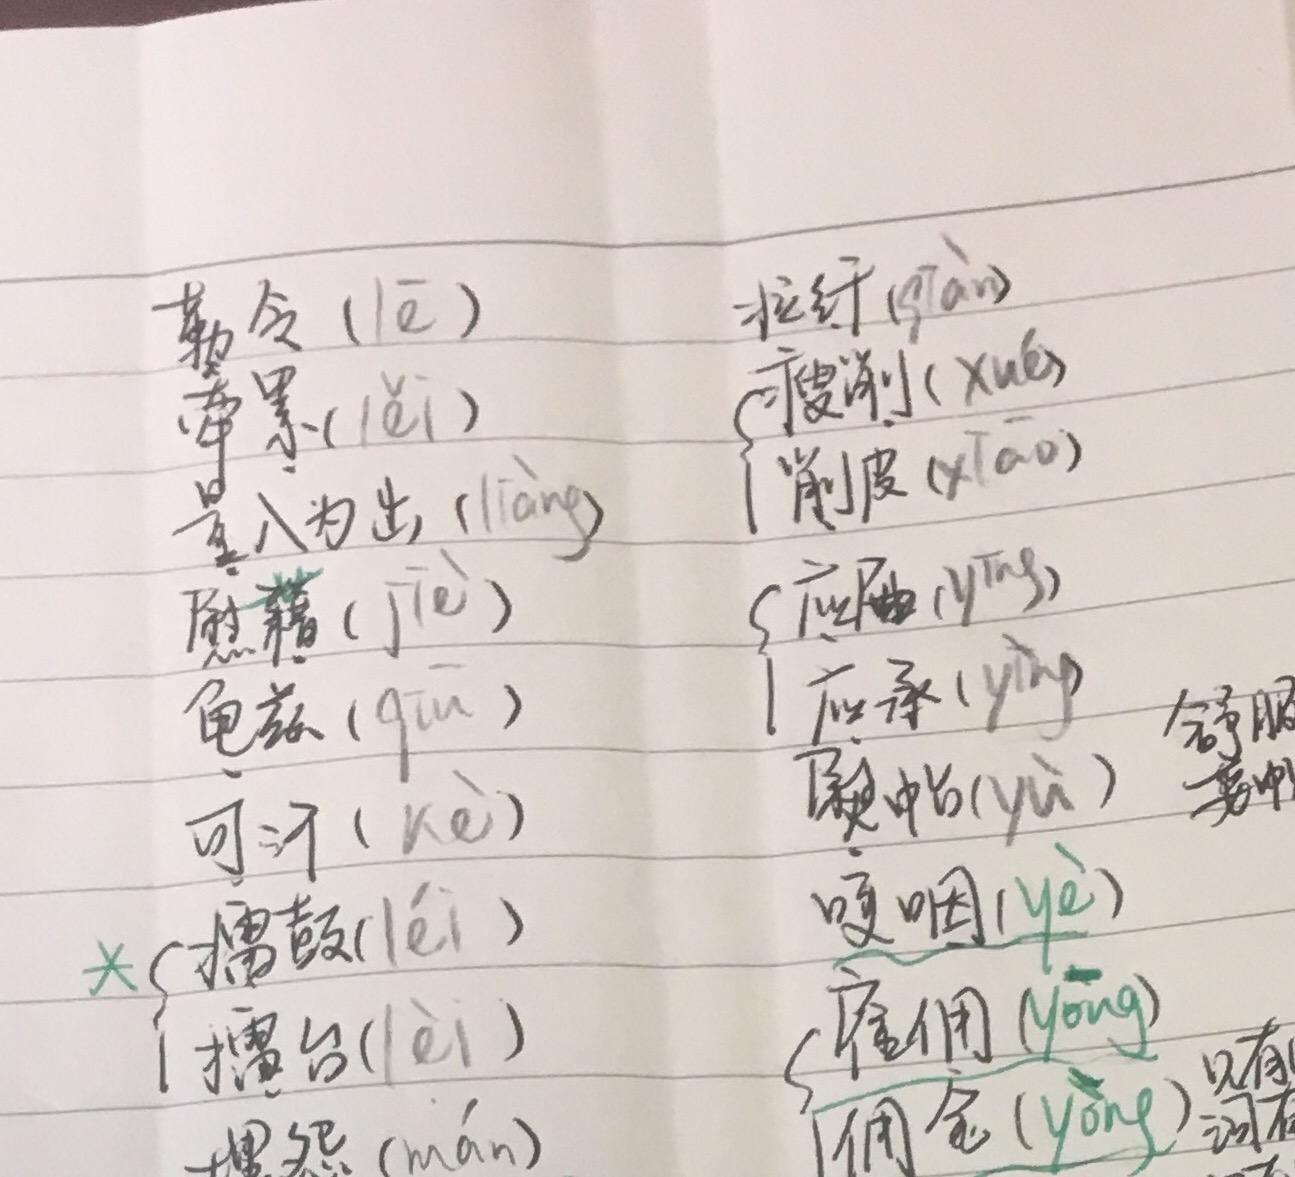 勒令(lē)
牵累(lěi)
量入为出(liàng)
慰藉(jiè)
龟兹(qiū)
可汗(kè)
*擂鼓(léi)
擂台(lèi)
埋怨(mán)
拉纤(qiàn)
瘦削(xuē)
削皮(xiāo)
应届(yīng)
应承(yìng)
熨帖(yù)
哽咽(yè)
雇佣(yōng)
佣金(yòng)
舒服
要
只有
词